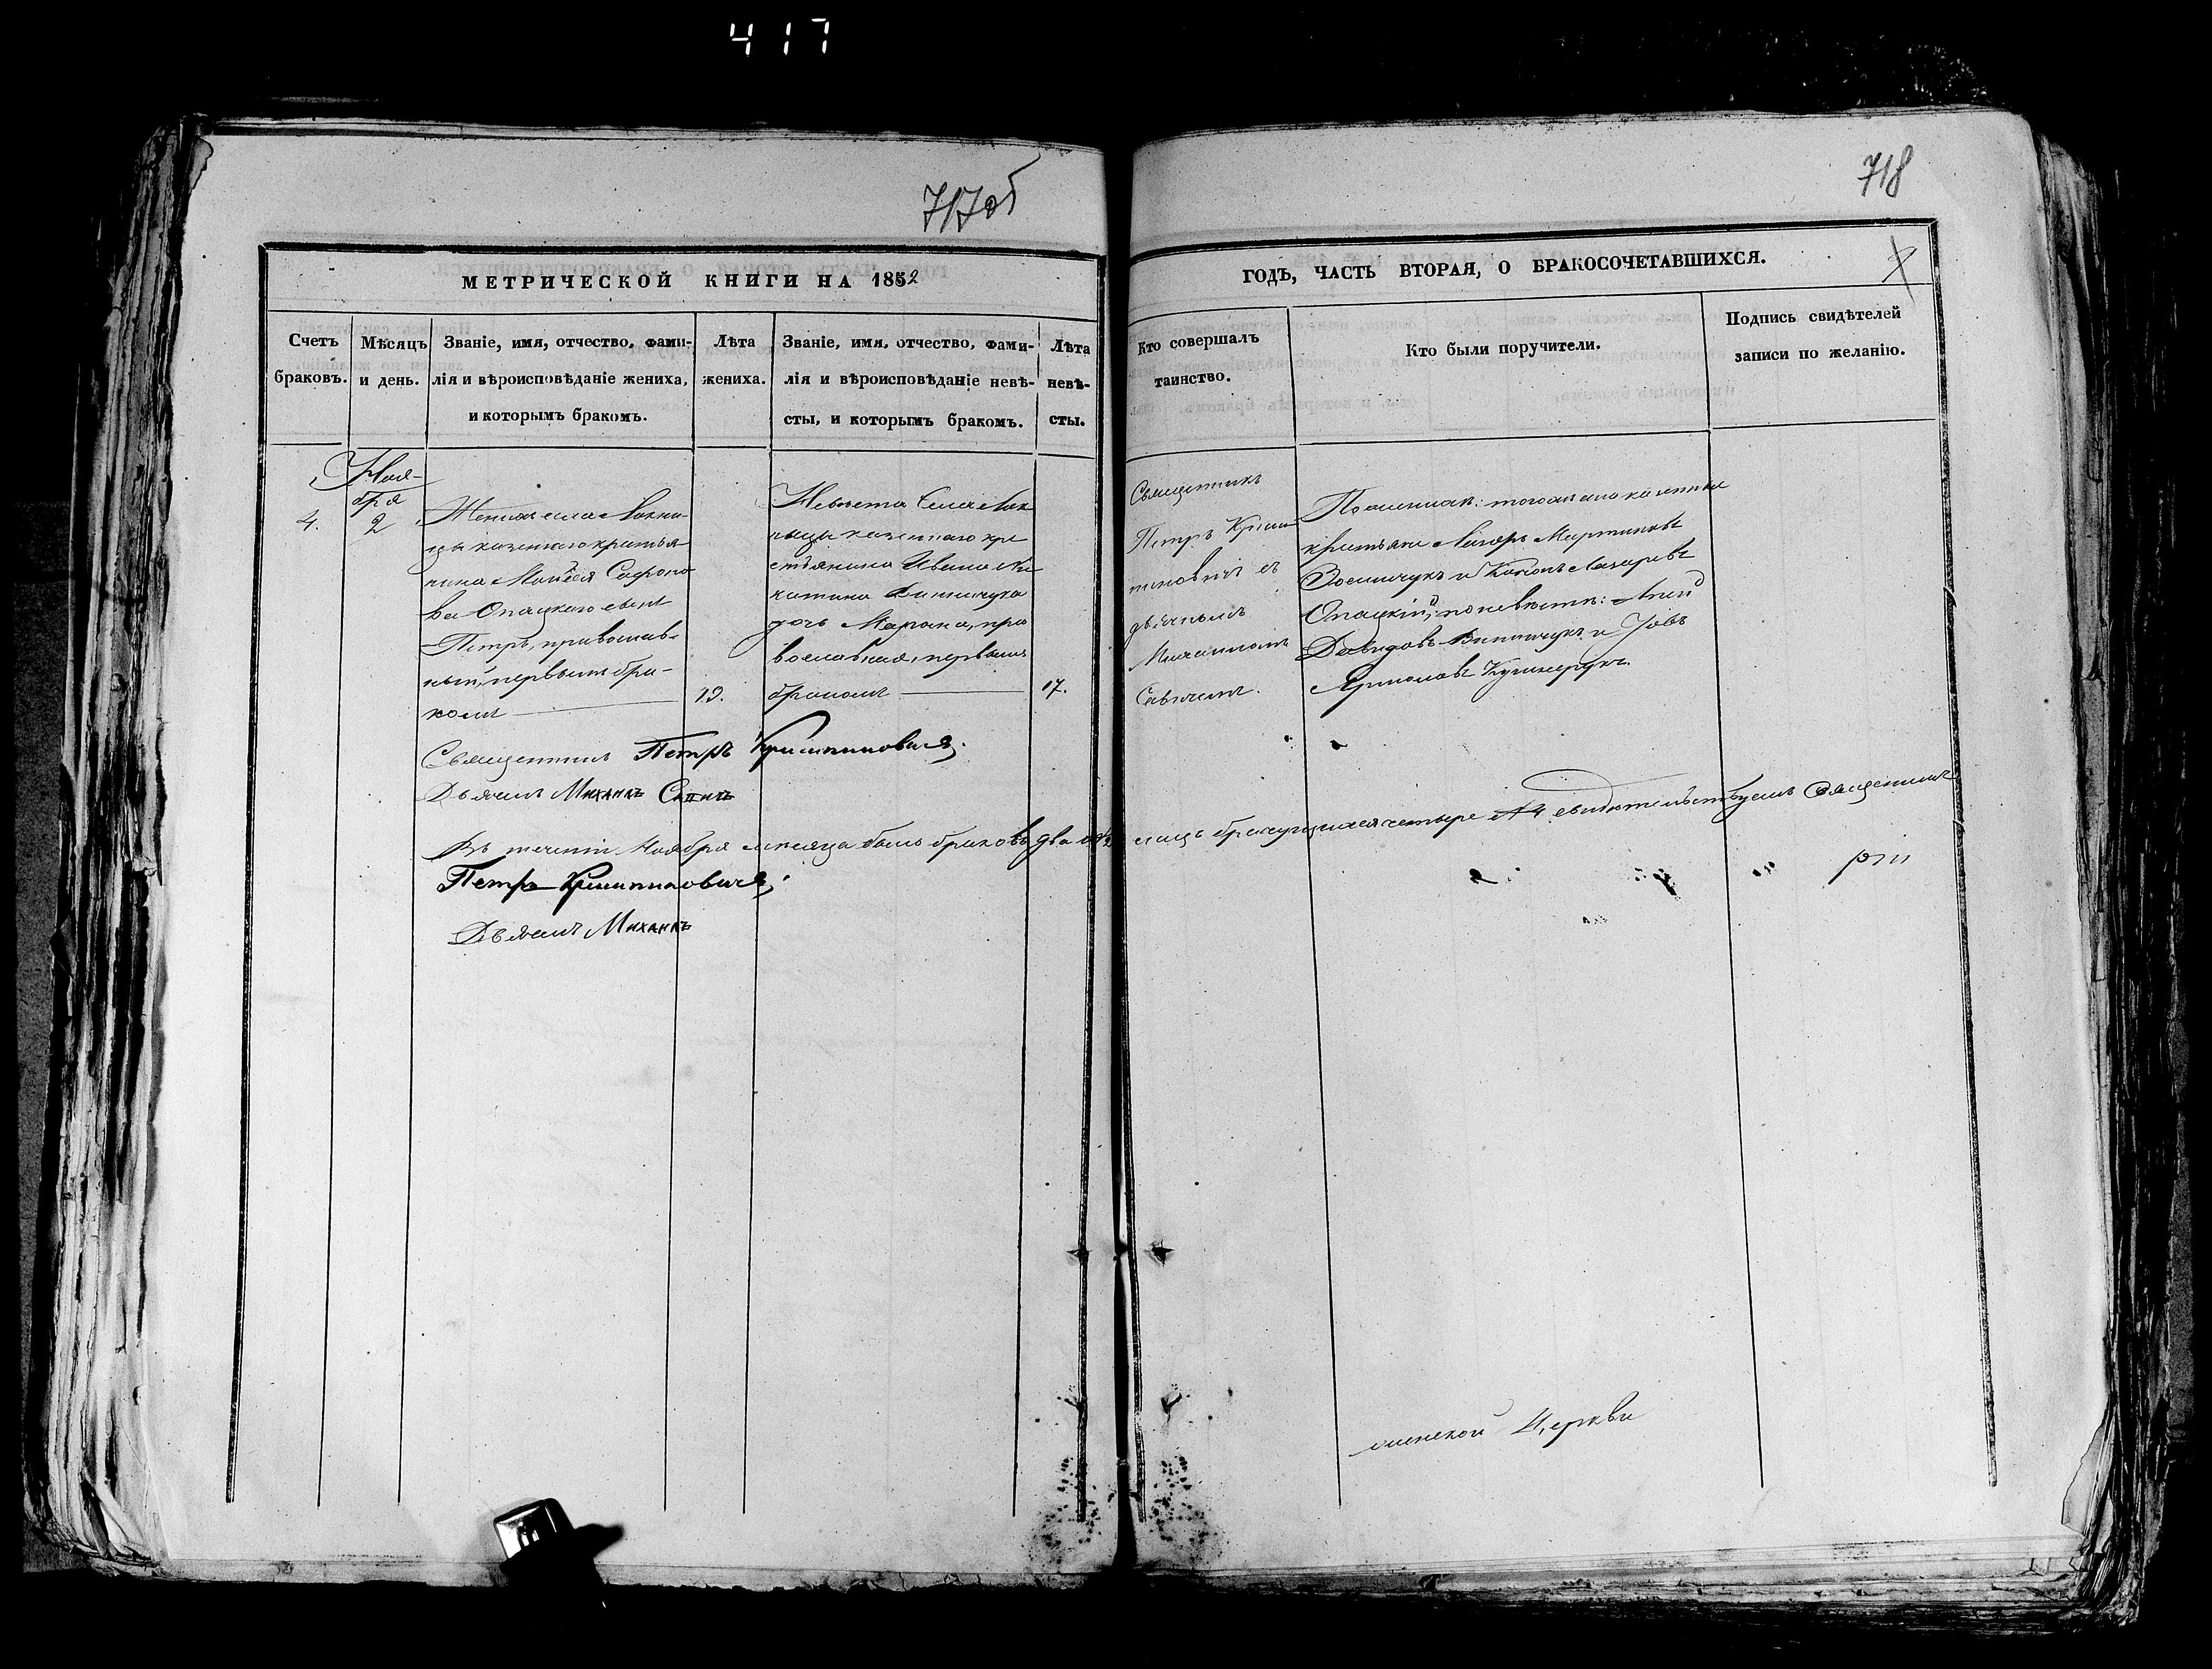 417
717об
718
МЕТРИЧЕСКОЙ КНИГИ НА 1852
ГОДЪ, ЧАСТЬ ВТОРАЯ, О БРАКОСОЧЕТАВШИХСЯ.
Счетъ
браковъ.
Мѣсяцъ
и день.
Званіе, имя, отчество, фами-
лія и вѣроисповѣданіе жениха,
и которымъ бракомъ.
Лѣта
жениха.
Званіе, имя, отчество, фами-
лія и вѣроисповѣданіе невѣ-
сты, и которымъ бракомъ.
Лѣта
невѣ-
сты.
Кто совершалъ
таинство.
Кто были поручители.
Подпись свидѣтелей
записи по желанію.
4.
Ноя-
бря
2
Женихъ села Локни-
цы казеннаго крестья
нина Моисея Софоно
ва Опацкаго сынъ
Петръ, православ-
ный, первымъ бра-
комъ
19.
Невѣста Села Лок
ницы казеннаго кре
стьянина Ивана Ни
китина Виннчука
дочь Марьяна, пра
вославная, первымъ
бракомъ
17.
Священникъ
Петръ Криш
пиновичъ съ
дьячкомъ
Михаиломъ
По женихѣ: того села казенные
крестьяне Лазарь Мартиновъ
и Кононъ Лазаревъ
Опацкій; по невѣстѣ:
Давидовъ Виннчукъ и Іовъ
Священникъ Петръ Кришпиновичъ.
Дьячокъ Михаилъ
Въ теченіи Ноября месяца было браковъ два
лицъ брачущихся четыре № 4 свидѣтельствуемъ Священникъ
Петръ Кришпиновичъ.
Дьячокъ Михаилъ
Церкви